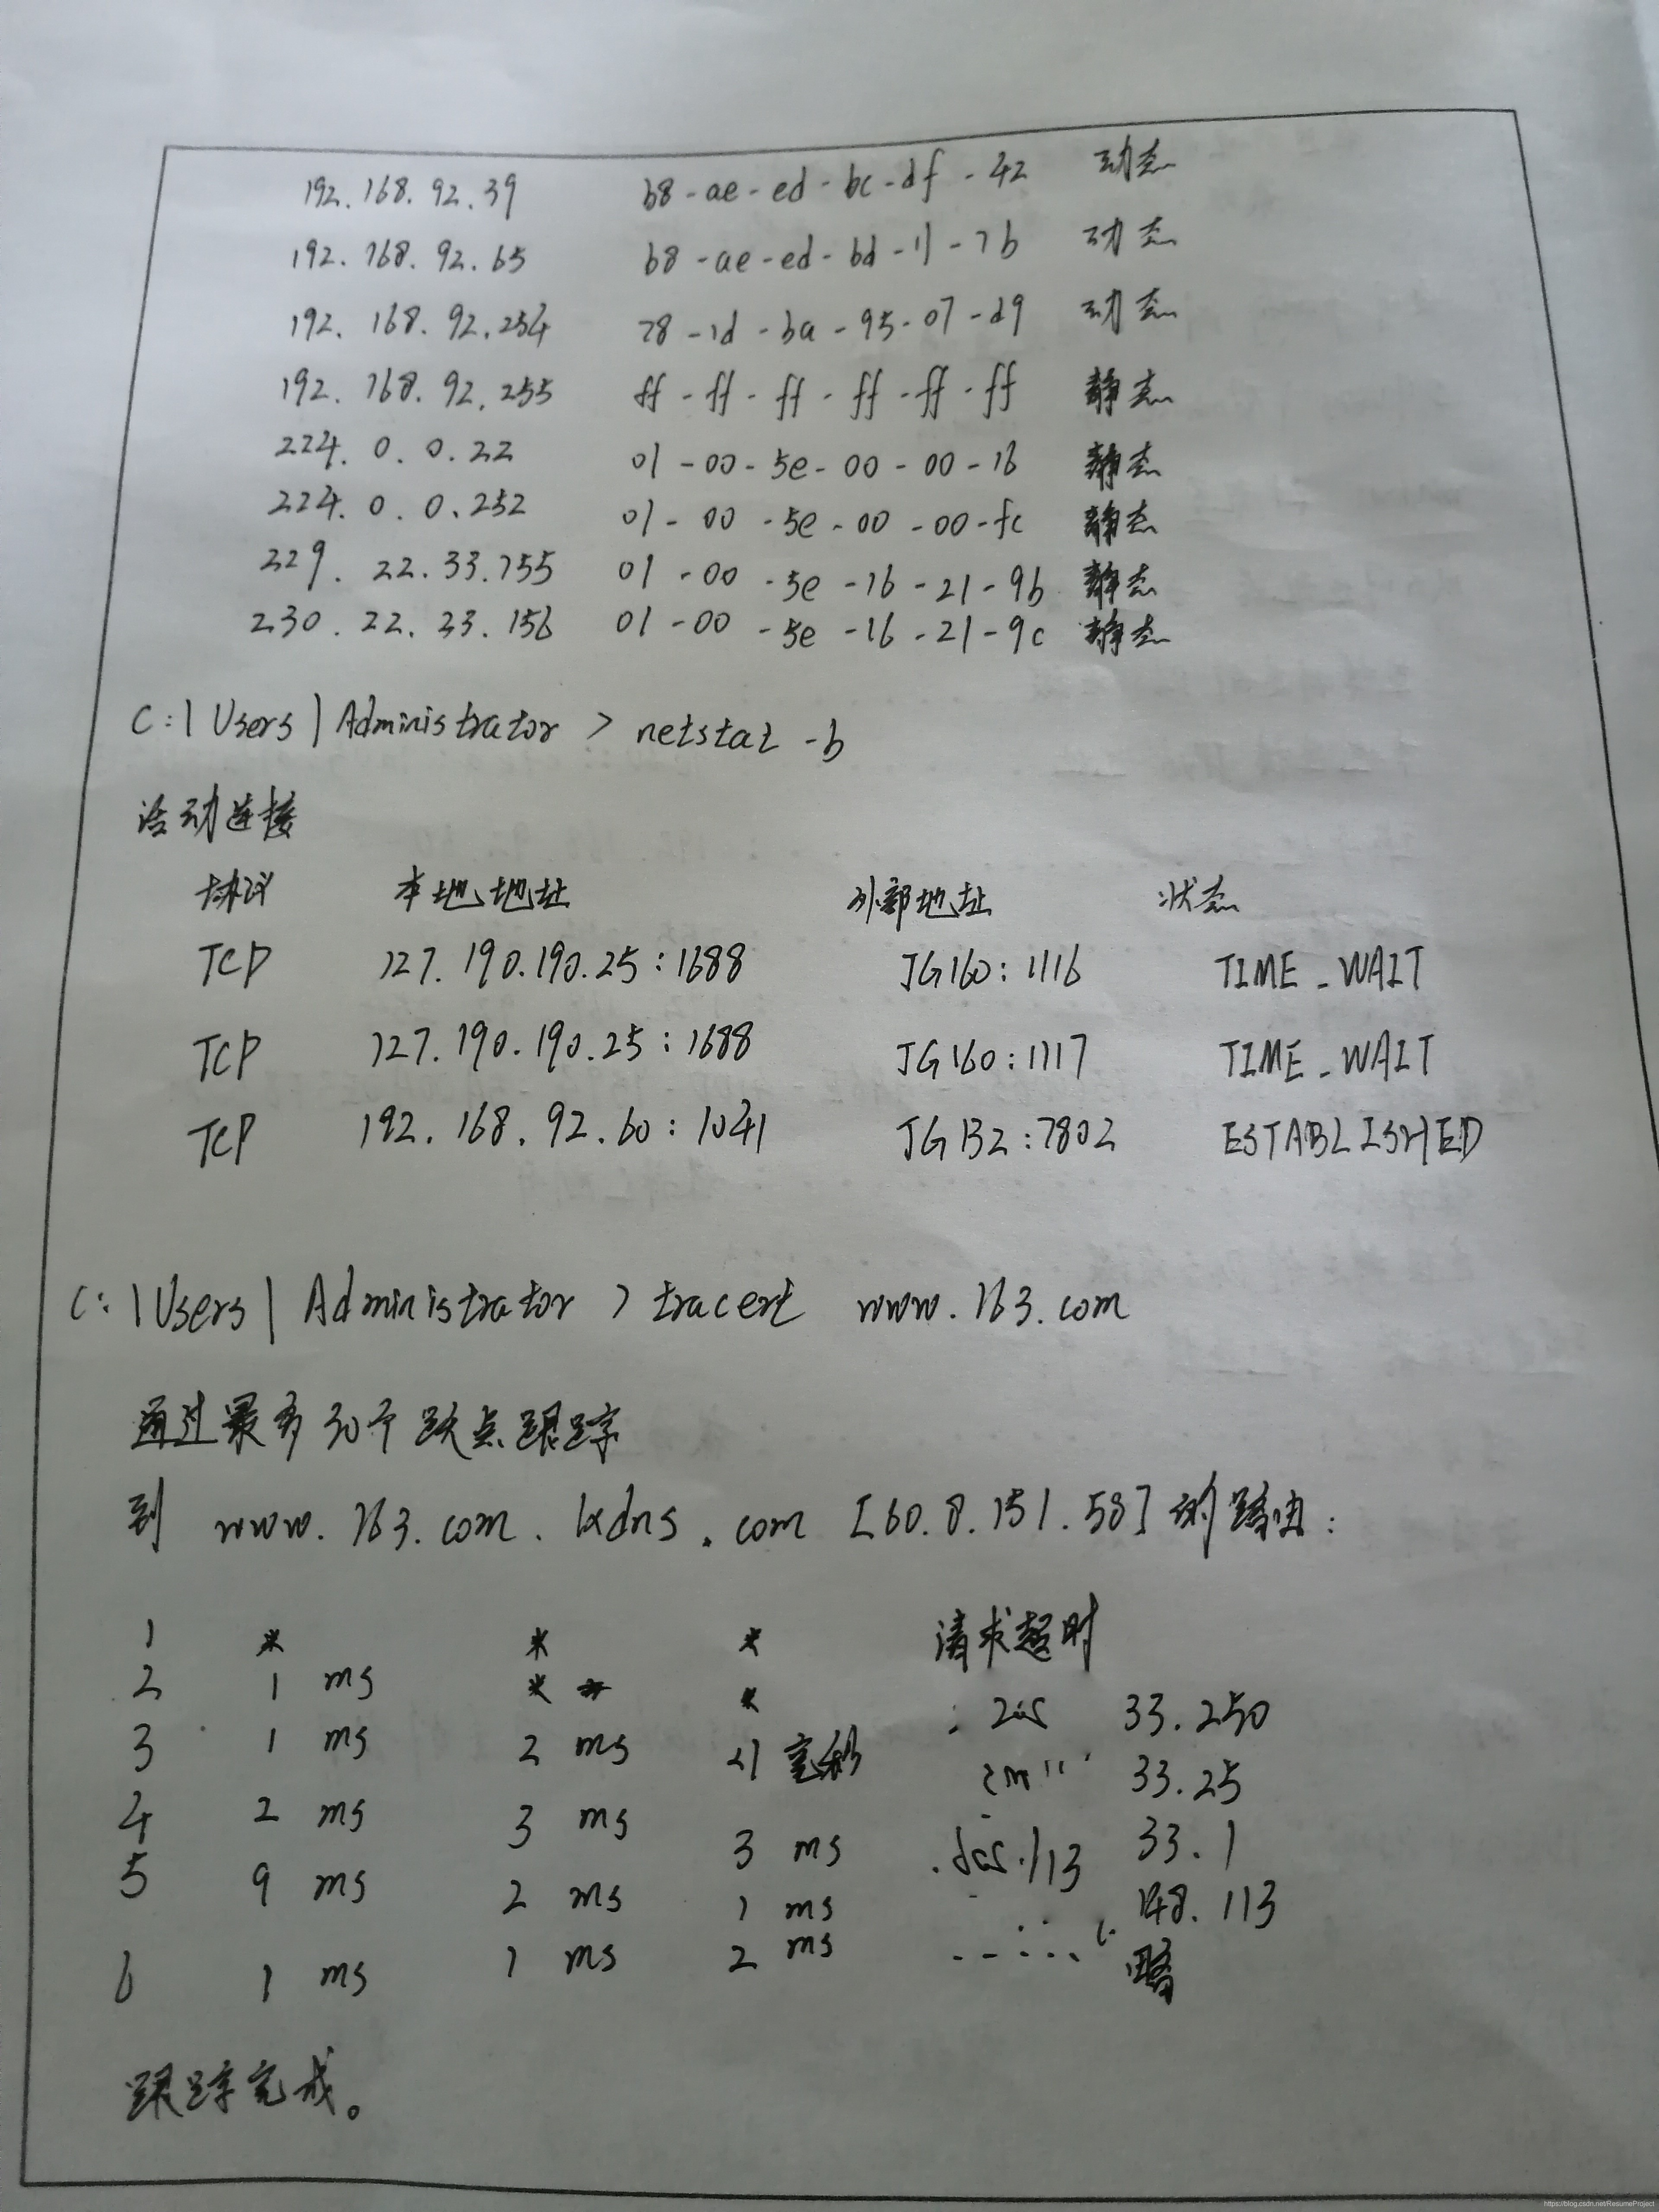 192.168.92.39 b8-ae-ed-bc-df-42 动态
192.168.92.65 b8-ae-ed-bd-11-7b 动态
192.168.92.254 78-1d-ba-95-07-d9 动态
192.168.92.255 ff-ff-ff-ff-ff-ff 静态
224.0.0.22 01-00-5e-00-00-16 静态
224.0.0.252 01-00-5e-00-00-fc 静态
229.22.33.155 01-00-5e-16-21-9b 静态
230.22.33.156 01-00-5e-16-21-9c 静态
C:\Users\Administrator > netstat -b
活动连接
协议 本地地址 外部地址 状态
TCP 127.190.190.25:1688 JG160:1116 TIME_WAIT
TCP 127.190.190.25:1688 JG160:1117 TIME_WAIT
TCP 192.168.92.60:1041 JG132:7802 ESTABLISHED
C:\Users\Administrator > tracert www.163.com
通过最多30个跃点跟踪
到 www.163.com.lxdns.com [60.8.151.58] 的路由:
1 * * * 请求超时
2 1 ms * * 33.250
3 1 ms 2 ms <1 毫秒 33.25
4 2 ms 3 ms 3 ms 33.1
5 9 ms 2 ms 1 ms 148.113
6 1 ms 1 ms 2 ms 略
跟踪完成。
https://blog.csdn.net/ResumeProject